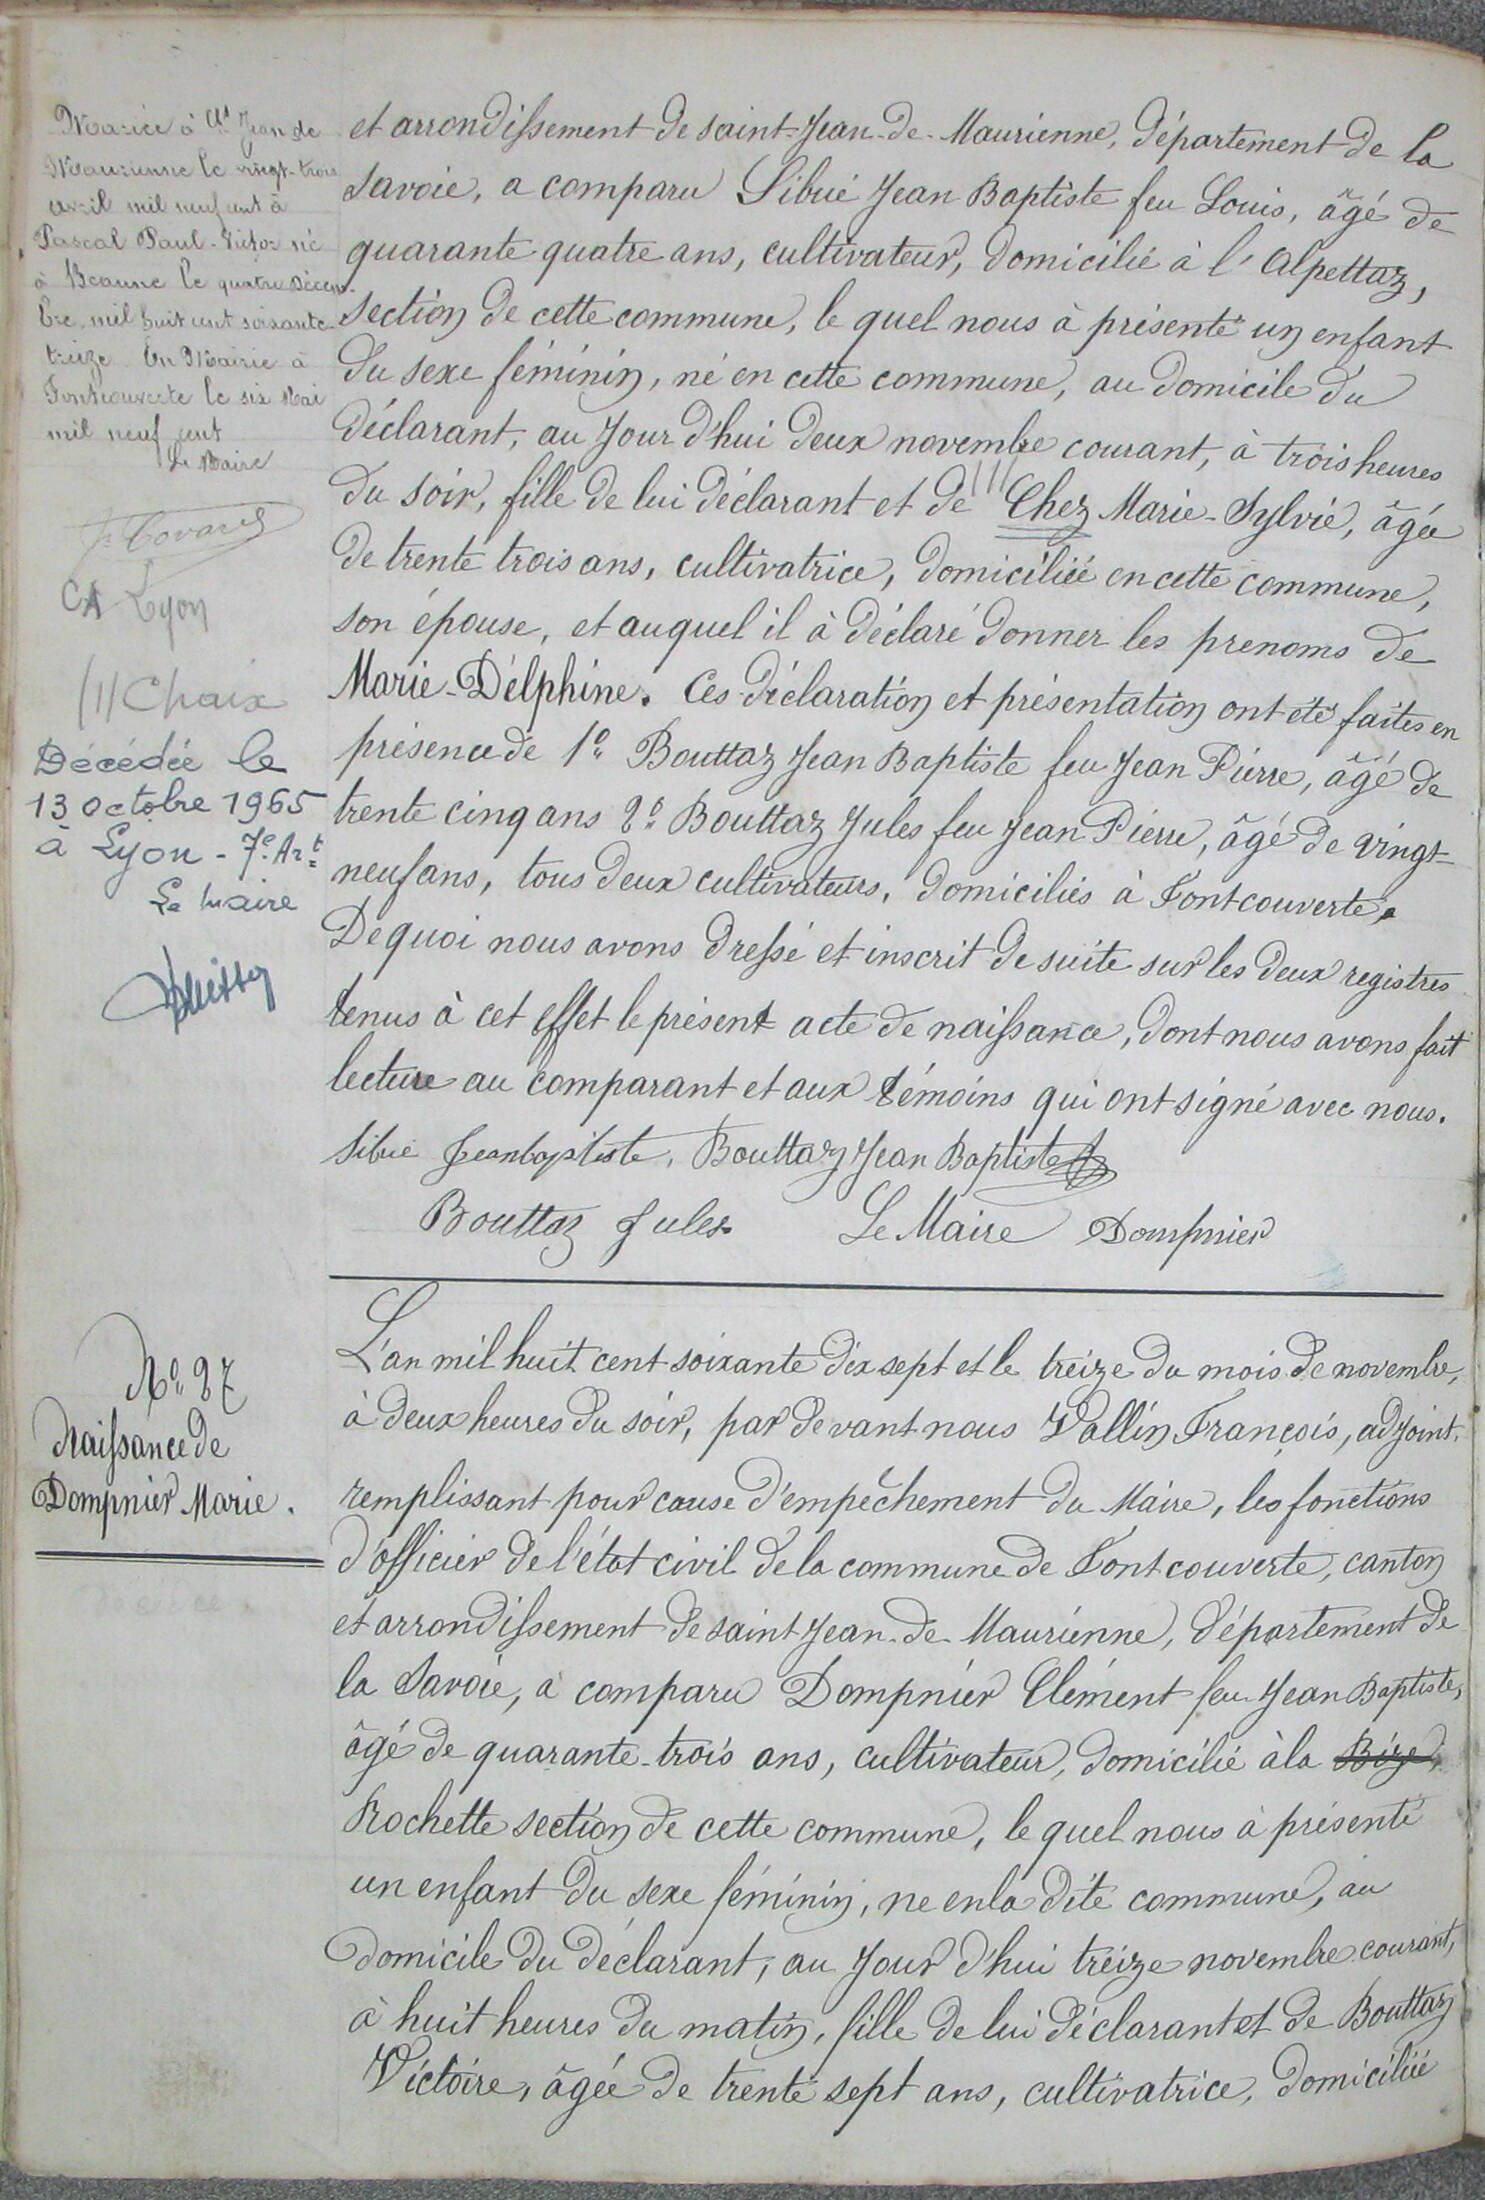 Mariée à St Jean de
Maurienne le vingt-trois
avril mil neuf cent à
Pascal Paul-Victor né
à Beaune le quatre Décem-
bre mil huit cent soixante-
treize. En Mairie à
Fontcouverte le six Mai
mil neuf cent
Le Maire
CA Lyon
(1) Chaix
Décédée le
13 octobre 1965
à Lyon - 7e Art
Le Maire
et arrondissement de saint-Jean-de-Maurienne, département de la
Savoie, a comparu Sibué Jean Baptiste feu Louis, âgé de
quarante quatre ans, cultivateur, domicilié à l'Alpettaz,
section de cette commune, le quel nous à présenté un enfant
du sexe féminin, né en cette commune, au domicile du
déclarant, au Jour d'hui deux novembre courant, à trois heures
du soir, fille de lui déclarant et de (1) Chez Marie-Sylvie, âgée
de trente trois ans, cultivatrice, domiciliée en cette commune,
son épouse, et auquel il à déclaré donner les prenoms de
Marie-Délphine. Ces déclaration et présentation ont été faites en
présence de 1o Bouttaz Jean Baptiste feu Jean Pierre, âgé de
trente cinq ans 2o Bouttaz Jules feu Jean Pierre, âgé de vingt-
neuf ans, tous deux cultivateurs, domiciliés à Fontcouverte,
De quoi nous avons dressé et inscrit de suite sur les deux registres
tenus à cet effet le présent acte de naissance, dont nous avons fait
lecture au comparant et aux témoins qui ont signé avec nous.
Sibué Jeanbaptiste, Bouttaz Jean Baptiste
Bouttaz Jules Le Maire Dompnier
No 27
Naissance de
Dompnier Marie.
L'an mil huit cent soixante dix sept et le treize du mois de novembre,
à deux heures du soir, par devant nous Vallin François, adjoint,
remplissant pour cause d'empêchement du Maire, les fonctions
d'officier de l'état civil de la commune de Fontcouverte, canton
et arrondissement de saint Jean-de-Maurienne, département de
la Savoie, à comparu Dompnier Clément feu Jean Baptiste,
âgé de quarante-trois ans, cultivateur, domicilié à la Bize,
Rochette section de cette commune, le quel nous à présenté
un enfant du sexe féminin, ne en la dite commune, au
domicile du déclarant, au Jour d'hui treize novembre courant,
à huit heures du matin, fille de lui déclarant et de Bouttaz
Victoire, âgée de trente sept ans, cultivatrice, domiciliée